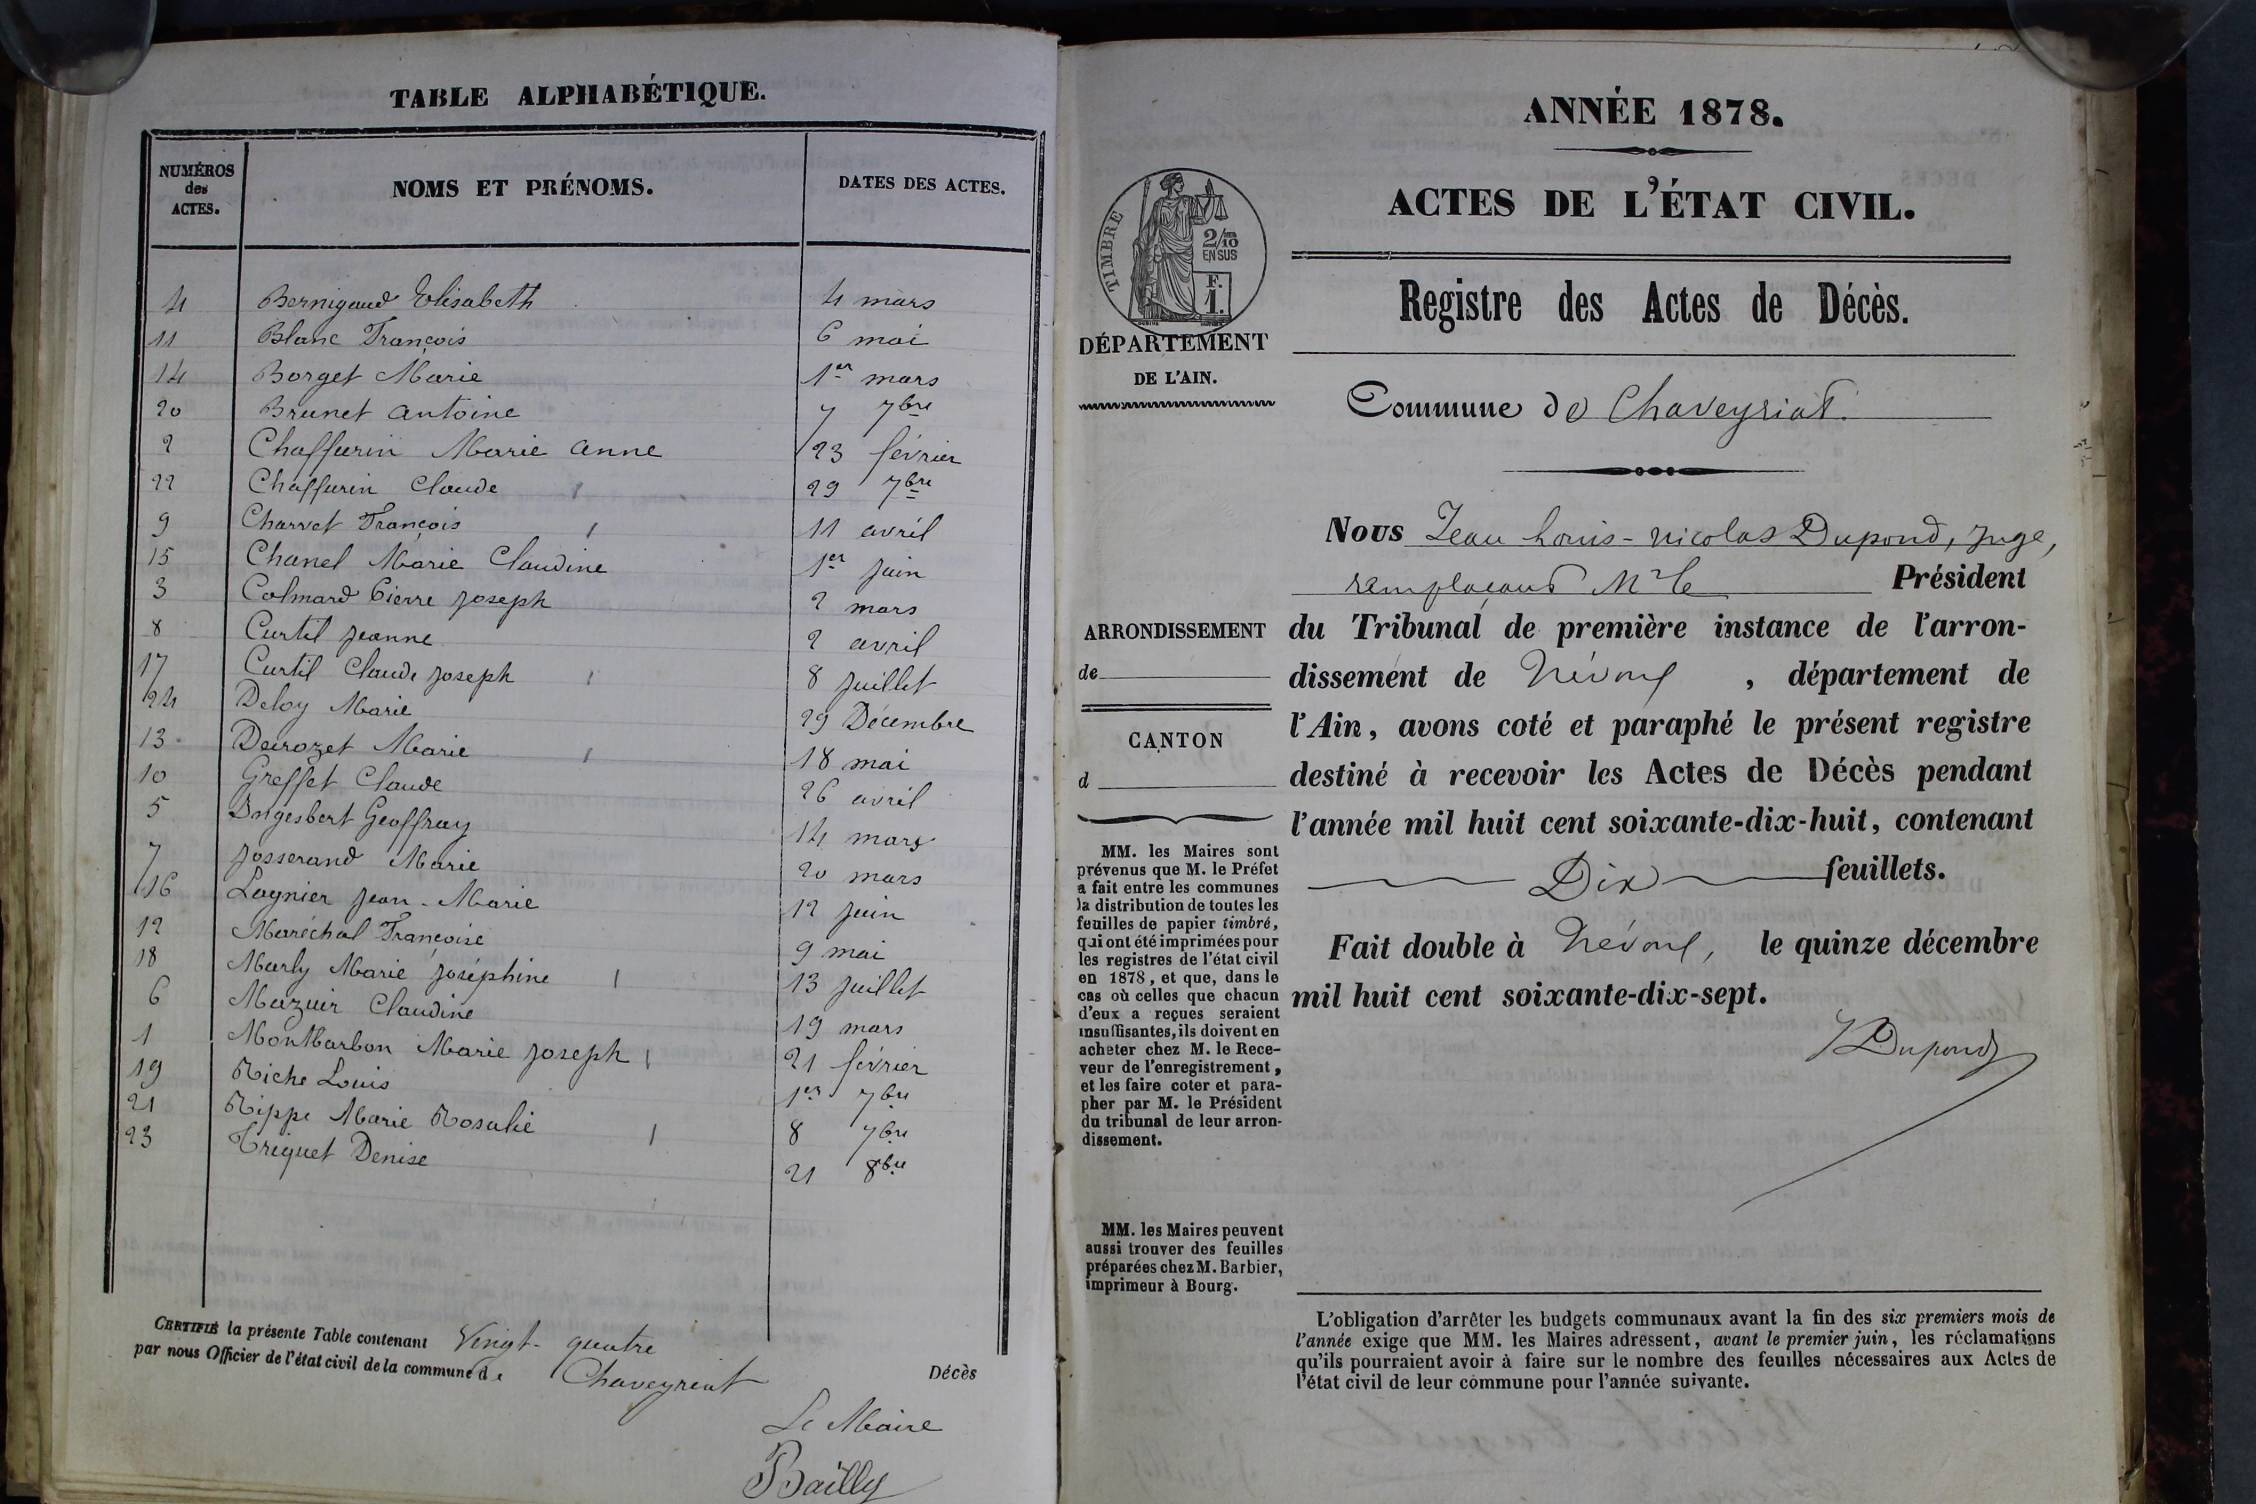 TABLE ALPHABÉTIQUE.
NUMÉROS des ACTES. NOMS ET PRÉNOMS. DATES DES ACTES.
4 Bernigaud Elisabeth 4 mars
11 Blanc François 6 mai
14 Borget Marie 1er mars
20 Brunet Antoine 7 7bre
2 Chaffurin Marie Anne 23 février
22 Chaffurin Claude 29 7bre
9 Charvet François 11 avril
15 Chanel Marie Claudine 1er juin
3 Colmard Pierre Joseph 2 mars
8 Curtil Jeanne 2 avril
17 Curtil Claude Joseph 8 juillet
24 Deloy Marie 29 Décembre
13 Derozet Marie 18 mai
10 Greffet Claude 26 avril
5 Ingesbert Geoffray 14 mars
7 Josserand Marie 20 mars
16 Lagnier Jean-Marie 12 juin
12 Maréchal Françoise 9 mai
18 Marly Marie Joséphine 13 juillet
6 Mazuir Claudine 19 mars
1 Montbarbon Marie Joseph 21 février
19 Riche Louis 1er 7bre
21 Rippe Marie Rosalie 8 7bre
23 Triquet Denise 21 8bre
CERTIFIÉ la présente Table contenant Vingt-quatre Décès
par nous Officier de l'état civil de la commune de Chaveyriat
Le Maire
Bailly
ANNÉE 1878.
ACTES DE L'ÉTAT CIVIL.
TIMBRE
2/10 EN SUS
F. 1.
DÉPARTEMENT
DE L'AIN.
Registre des Actes de Décès.
Commune de Chaveyriat.
Nous Jean Louis-Nicolas Dupond, Juge,
remplaçant Mr le Président
du Tribunal de première instance de l'arron-
dissement de Trévoux, département de
l'Ain, avons coté et paraphé le présent registre
destiné à recevoir les Actes de Décès pendant
l'année mil huit cent soixante-dix-huit, contenant
Dix feuillets.
Fait double à Trévoux, le quinze décembre
mil huit cent soixante-dix-sept.
Dupond
ARRONDISSEMENT
de
CANTON
d
MM. les Maires sont
prévenus que M. le Préfet
a fait entre les communes
la distribution de toutes les
feuilles de papier timbré,
qui ont été imprimées pour
les registres de l'état civil
en 1878, et que, dans le
cas où celles que chacun
d'eux a reçues seraient
insuffisantes, ils doivent en
acheter chez M. le Rece-
veur de l'enregistrement,
et les faire coter et para-
pher par M. le Président
du tribunal de leur arron-
dissement.
MM. les Maires peuvent
aussi trouver des feuilles
préparées chez M. Barbier,
imprimeur à Bourg.
L'obligation d'arrêter les budgets communaux avant la fin des six premiers mois de
l'année exige que MM. les Maires adressent, avant le premier juin, les réclamations
qu'ils pourraient avoir à faire sur le nombre des feuilles nécessaires aux Actes de
l'état civil de leur commune pour l'année suivante.